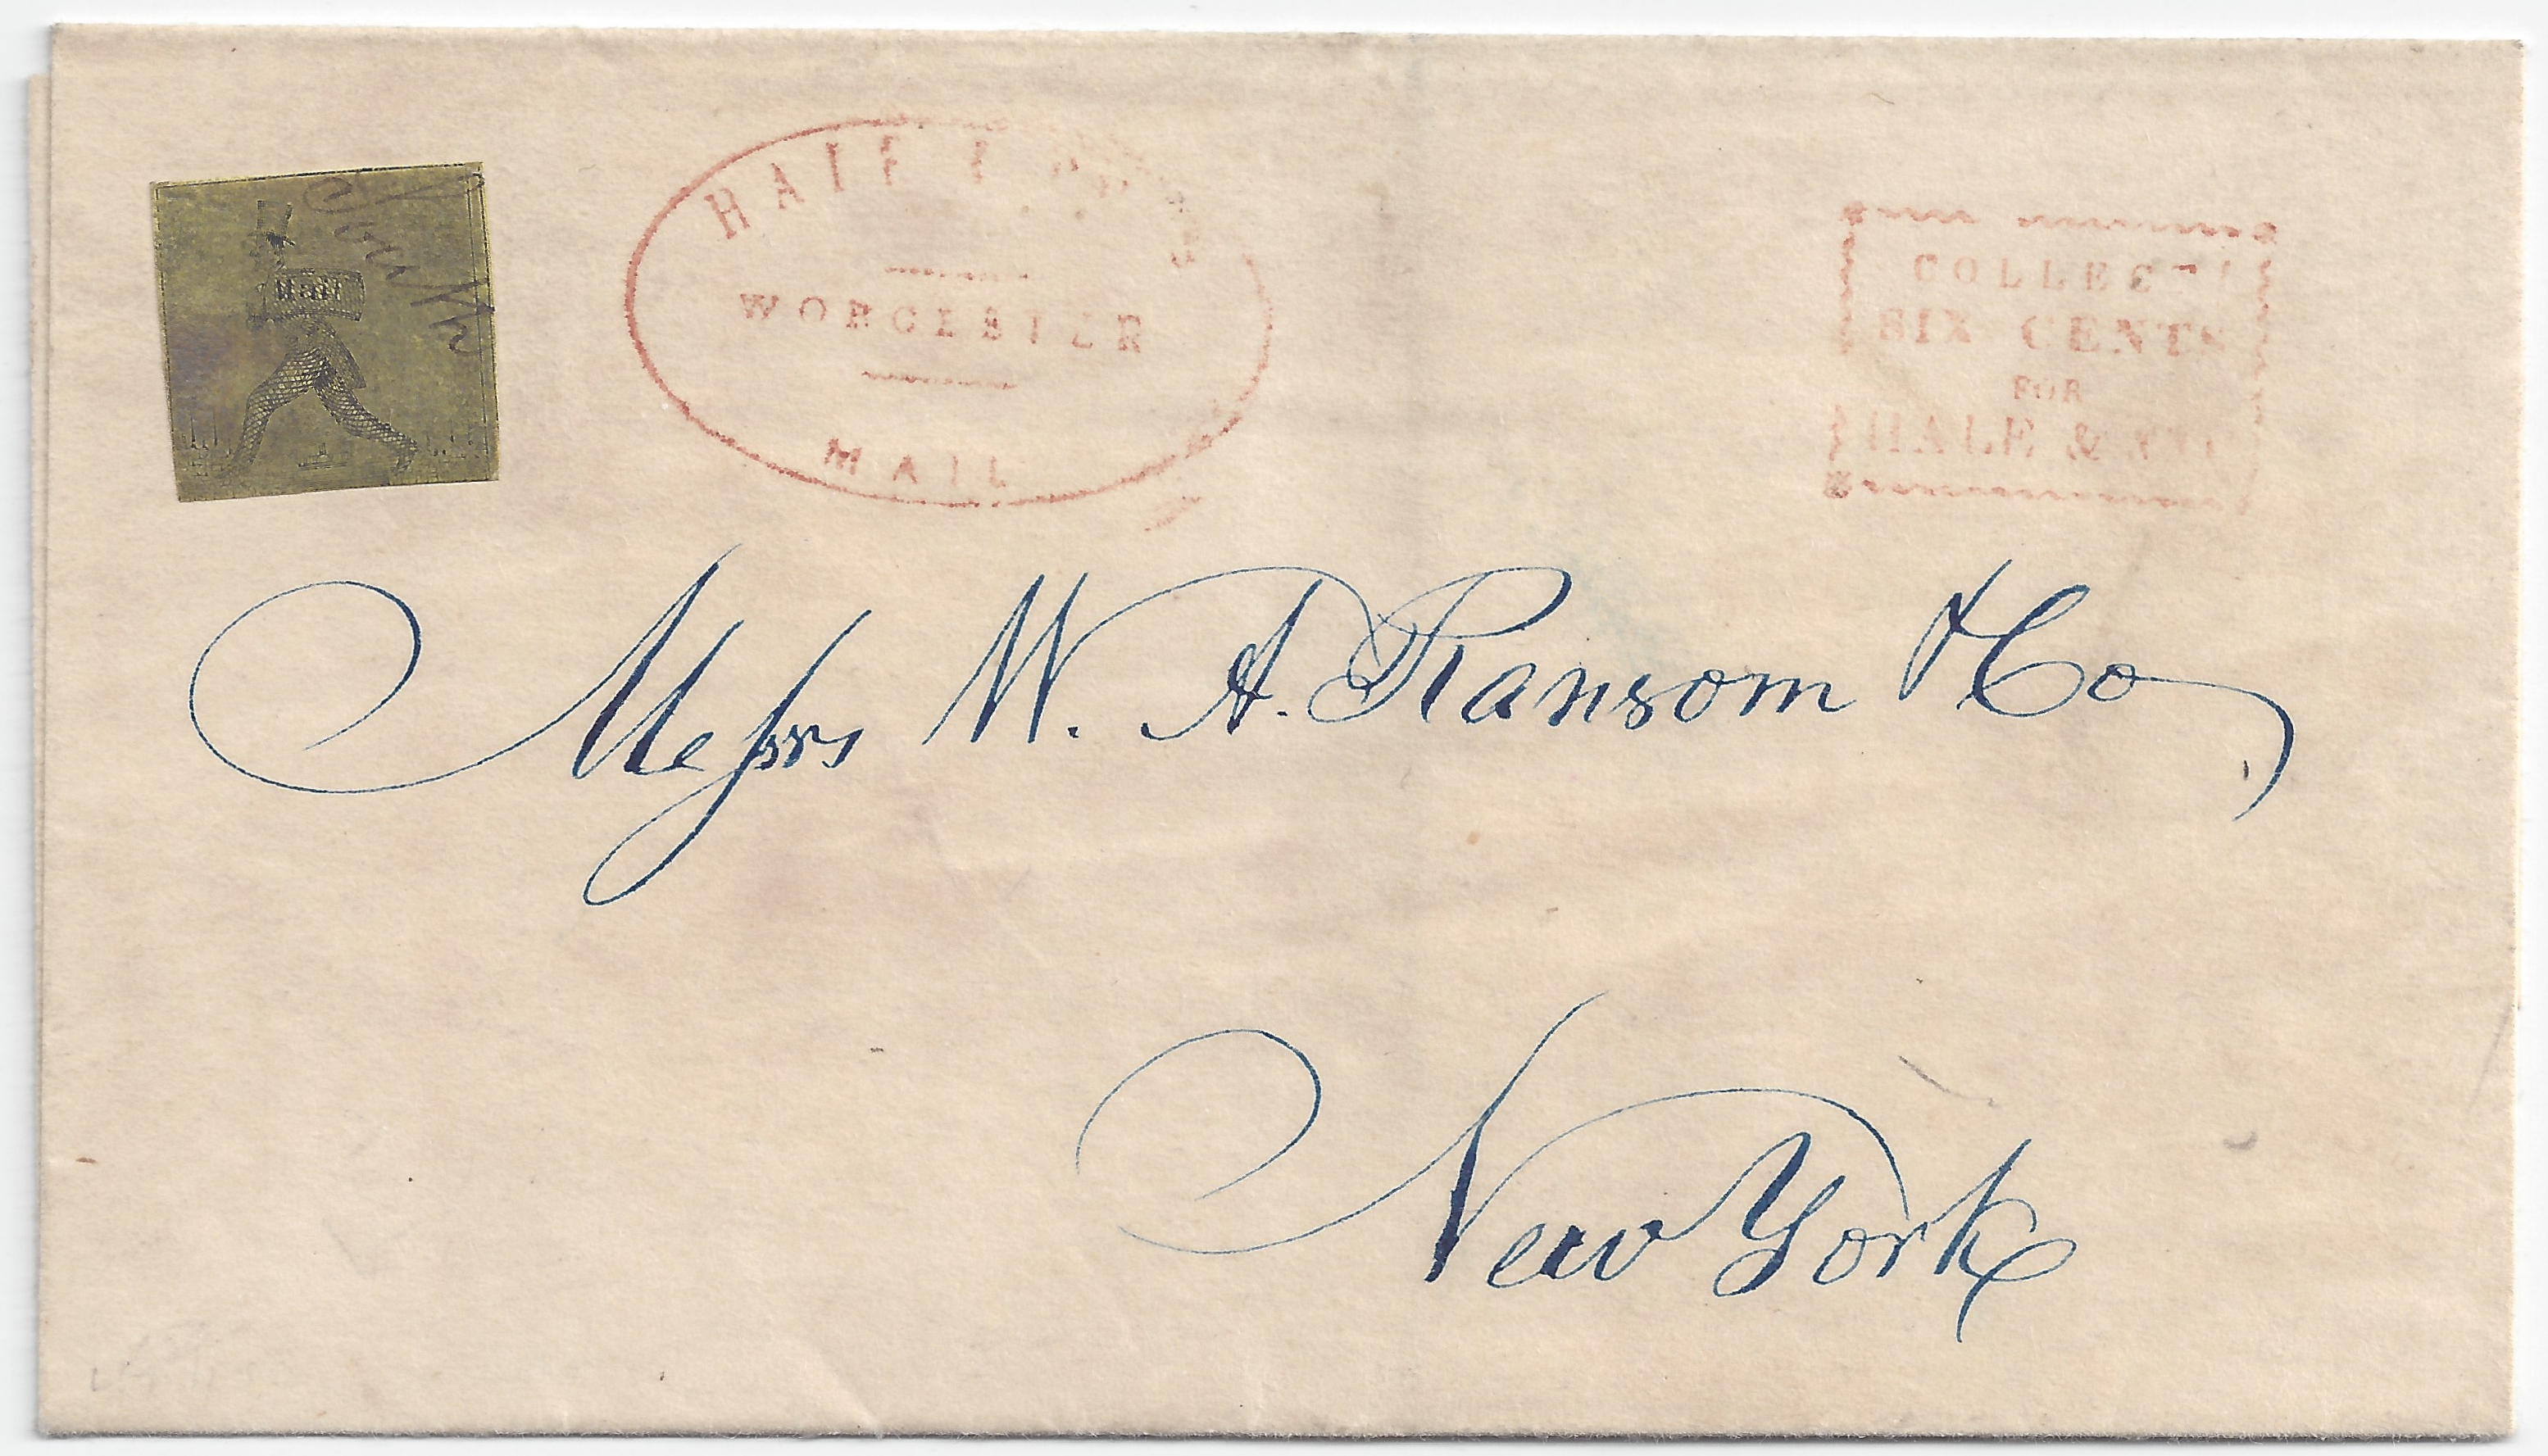 South
Mail
WORCESTER
MAIL
COLLECT
SIX CENTS
FOR
HALE &
Messrs W. A. Ransom & Co
New York